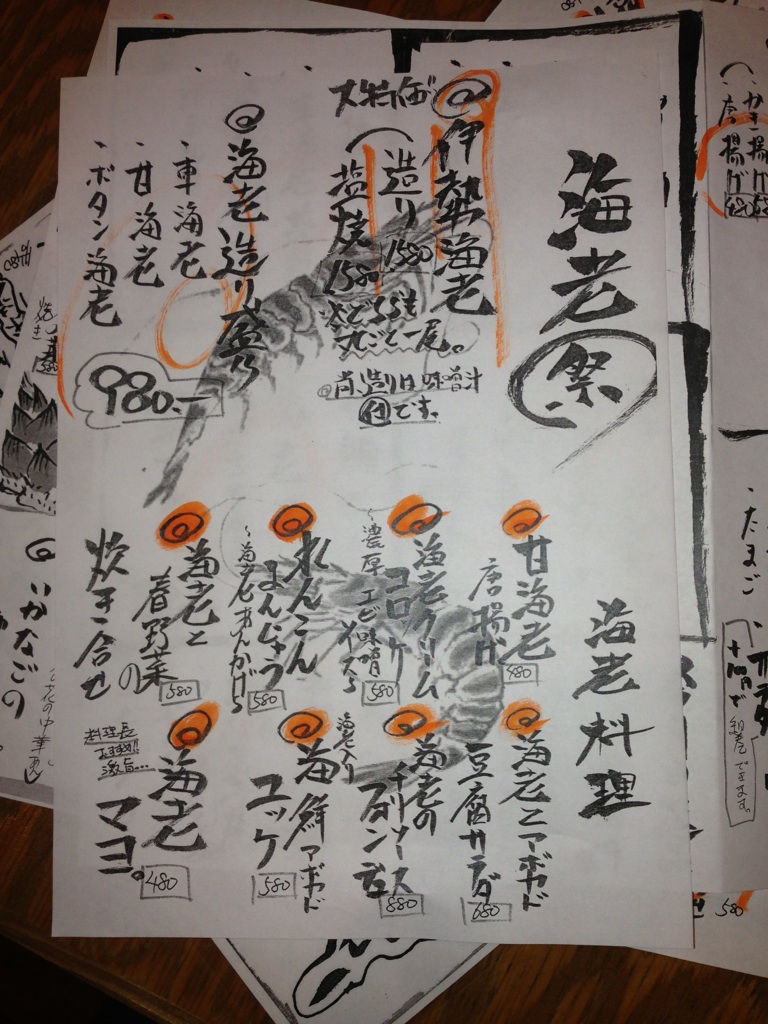 海老祭
◎伊勢海老
スペ特価
造り 1580
塩焼 1580
丸ごと一尾。
◎尚造りは味噌汁
付です。
◎海老造り盛り
・車海老
・甘海老
・ボタン海老
980.-
海老料理
甘海老
唐揚げ
580
海老クリーム
コロッケ
〜濃厚エビ味噌ソース〜
580
れんこん
まんじゅう
〜海老あんかけ〜
580
海老と
春野菜の
炊き合せ
580
海老とアボカド
豆腐サラダ
680
海老の
チリソース
フォンデュ
880
海老入り
海鮮アボカド
ユッケ
580
海老
マヨ。
480
料理長
おすすめ!!
激旨…
かき揚げ
唐揚げ
480
・たまご
できます。
◎いかなごの
580